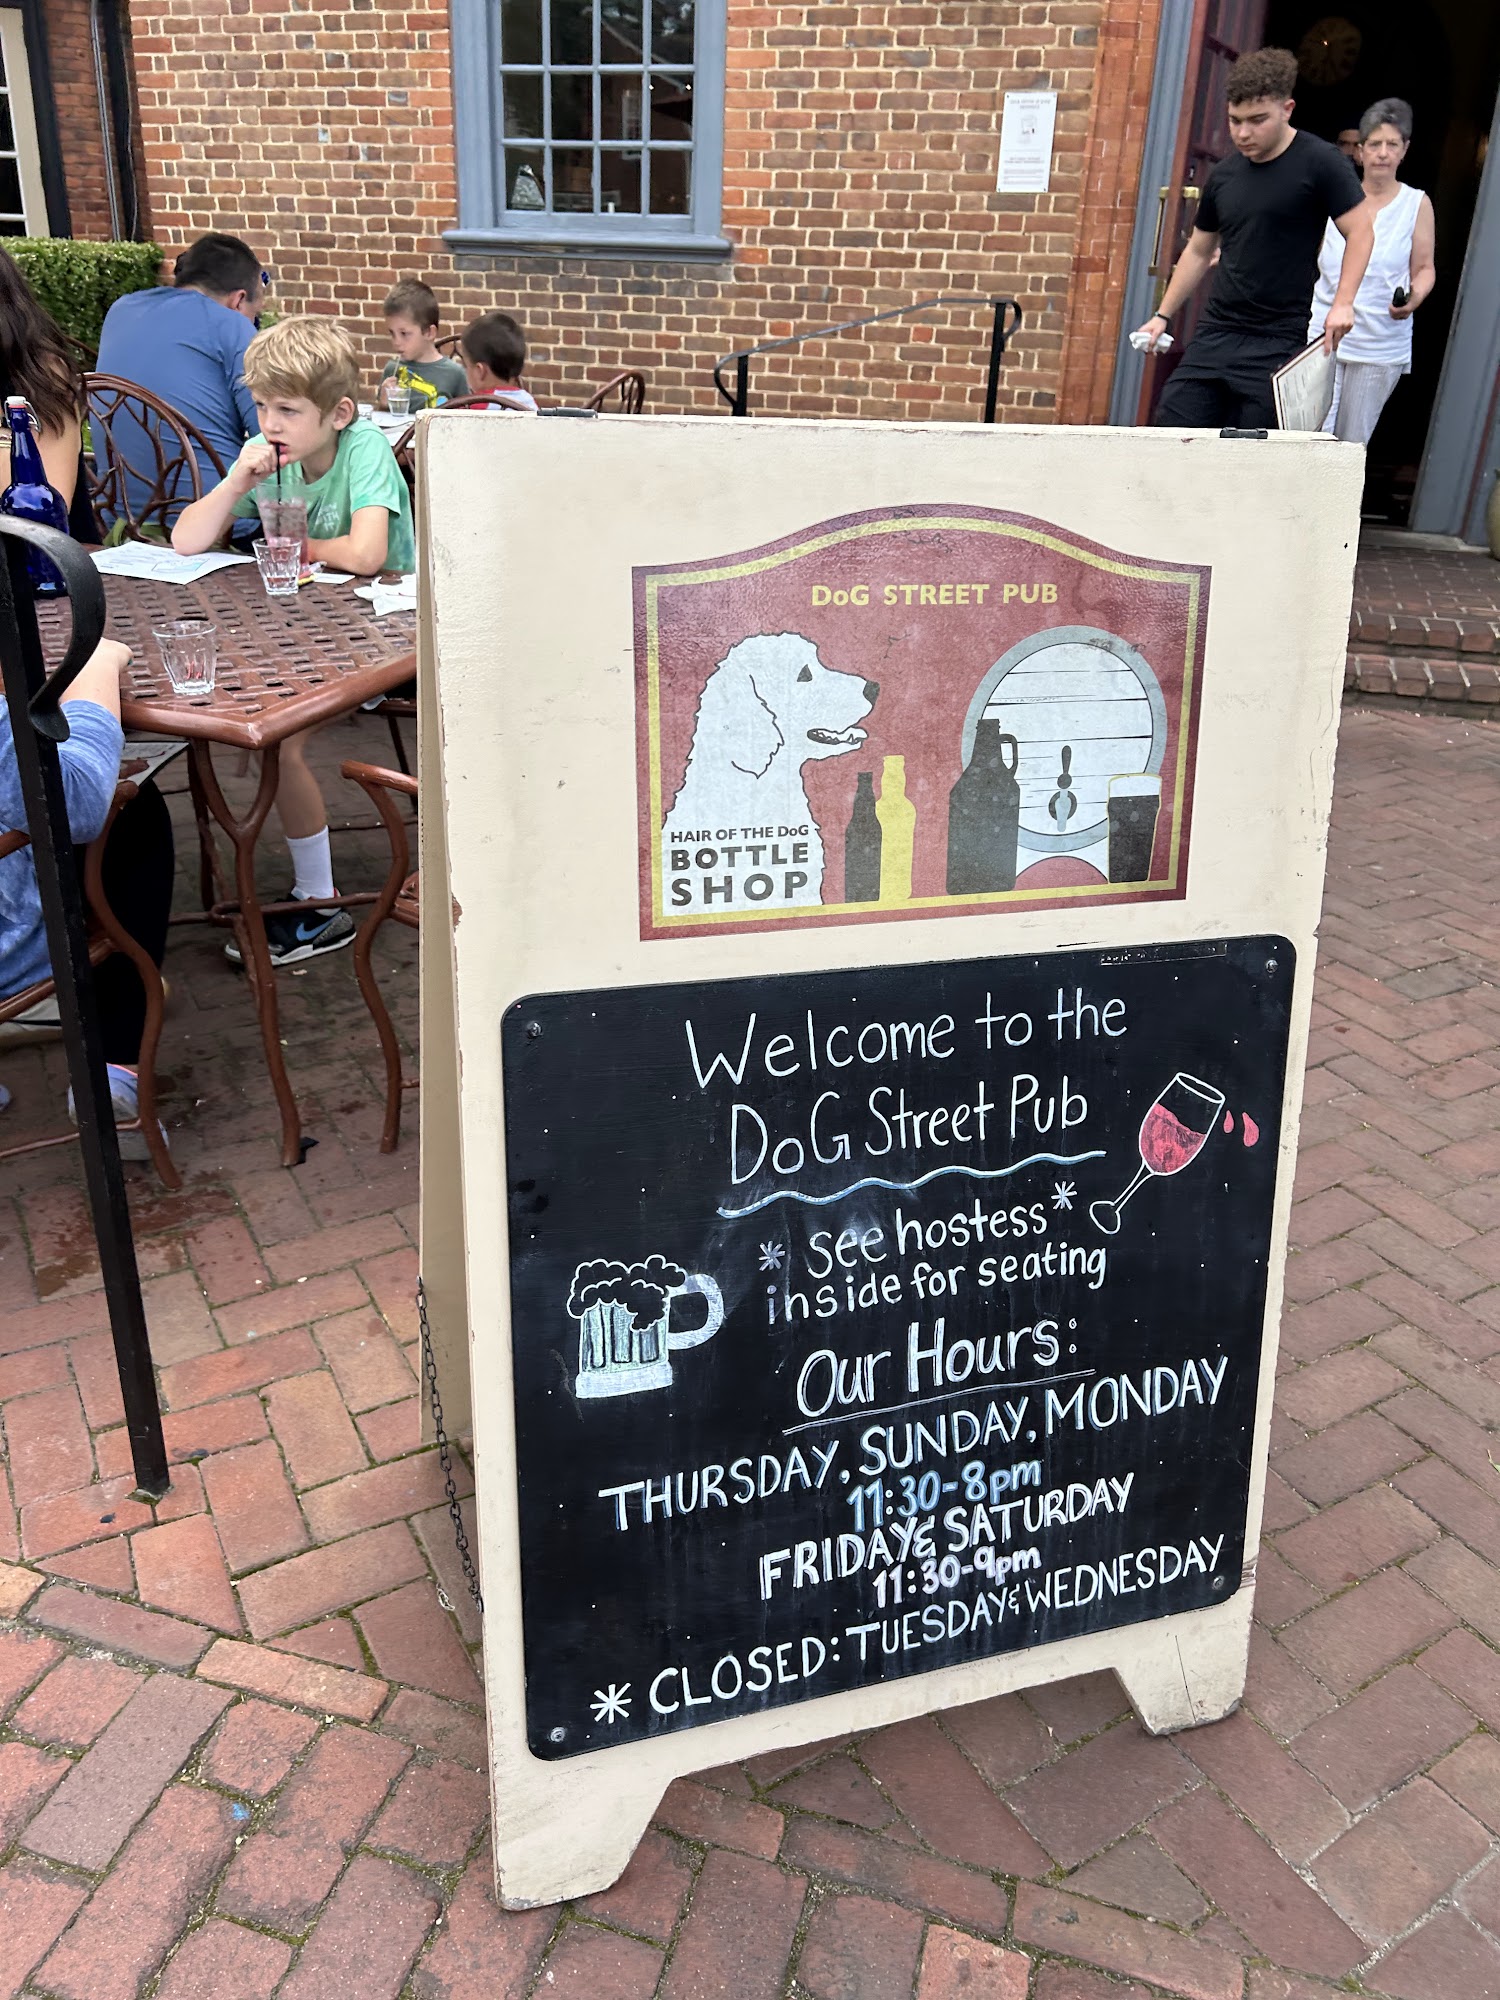 DoG STREET PUB
HAIR OF THE DoG
BOTTLE
SHOP
Welcome to the
DoG Street Pub
* See hostess *
inside for seating
Our Hours:
THURSDAY, SUNDAY, MONDAY
11:30-8pm
FRIDAY & SATURDAY
11:30-9pm
* CLOSED: TUESDAY & WEDNESDAY